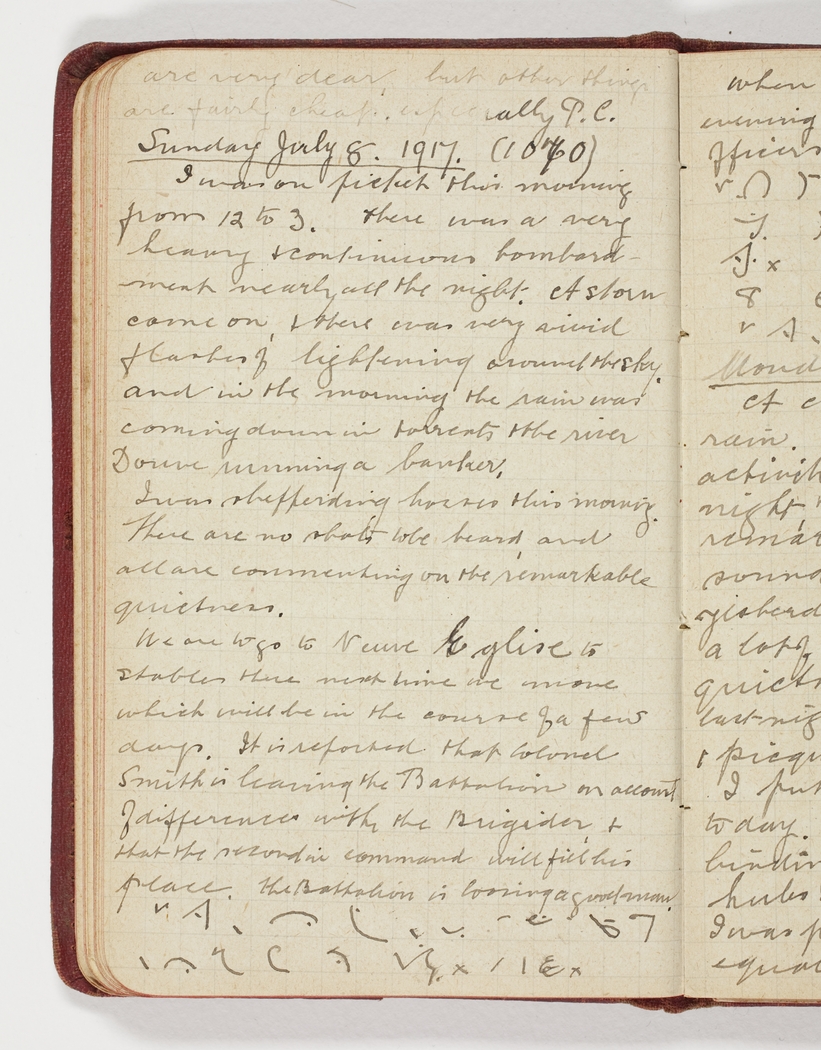 are very dear, but other things
are fairly cheap, especially P.C.
Sunday July 8. 1917. (1070)
I was on picket this morning
from 12 to 3. There was a very
heavy & continuous bombard-
ment nearly all the night. A storm
came on, & there was very vivid
flashes of lightening around the sky.
and in the morning the rain was
coming down in torrents & the river
Douve running a banker.
I was shefferding horses this morning.
There are no shots to be heard and
all are commenting on the remarkable
quietness.
We are to go to Neuve Eglise to
stables there next time we move
which will be in the course of a few
days. It is reported that Colonel
Smith is leaving the Battalion on account
of differences with the Brigider, &
that the second in command will fill his
place. The Battalion is loosing a good man.
when
evening
Officers
Mond
A c
rain.
activit
night
remar
sound
yisterd
a lot of
quiet
last nig
& picqu
I put
today.
bindin
hubs
I was p
equal